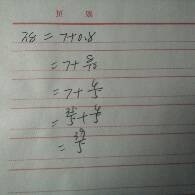 7.8 = 7+0.8
= 7+ 8/10
= 7+ 4/5
= 35/5 + 4/5
= 39/5